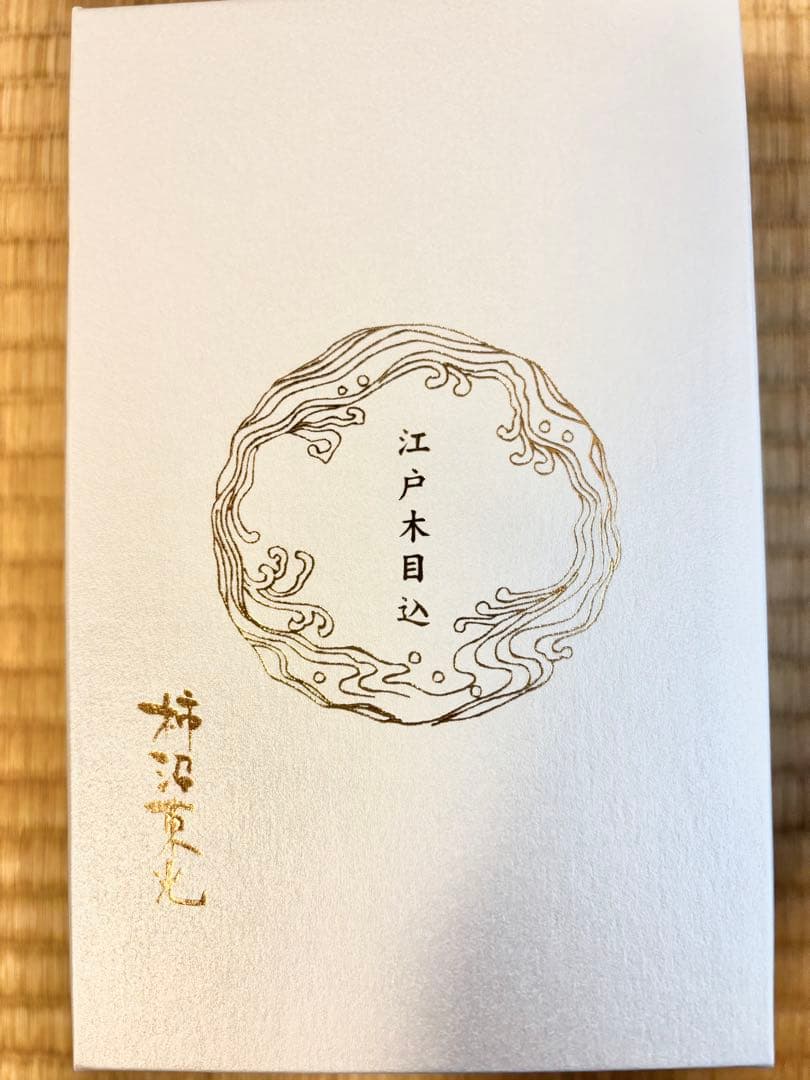 江戸木目込
柿沼東光